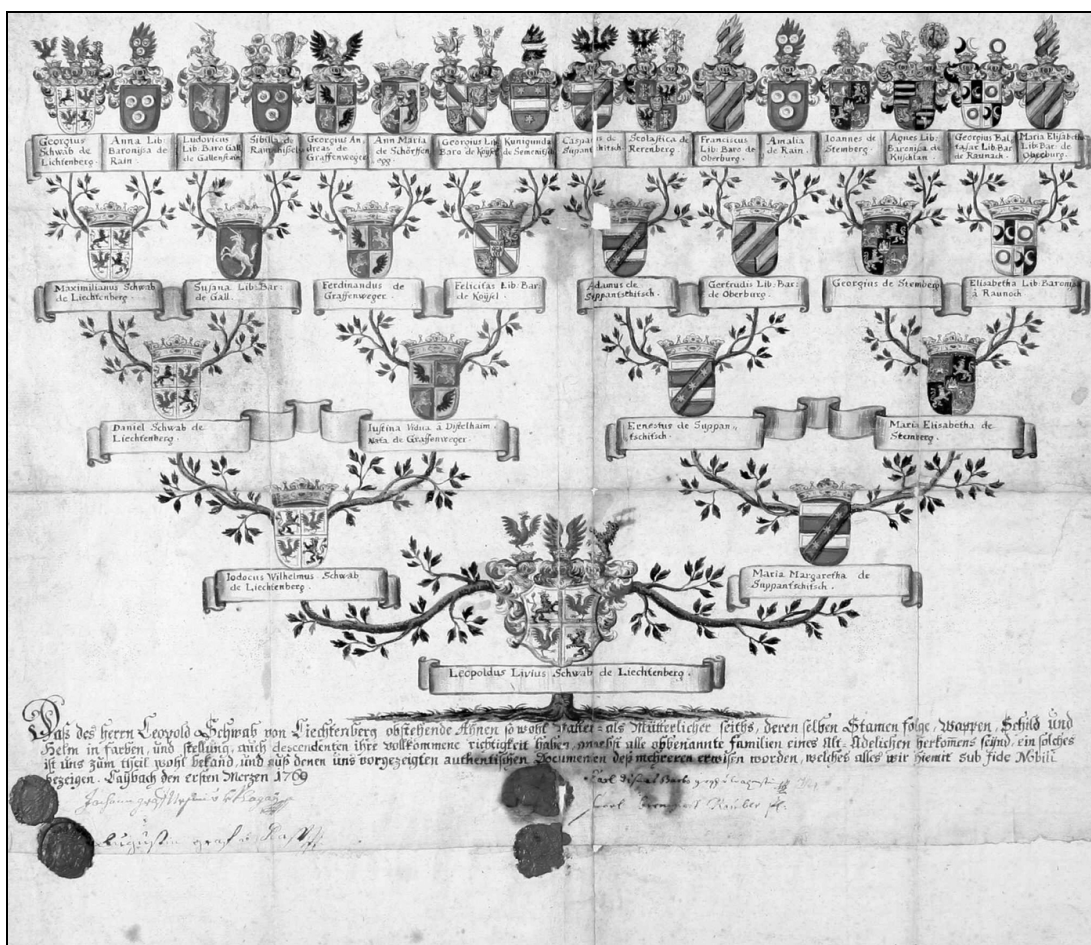 Georgius
Schwab de
Liechtenberg.
Anna Lib:
Baronißa de
Rain.
Ludovicus
Lib: Baro Gall
de Gallenstain
Sibilla de
Georgius An
dreas de
Graffenweger.
Ann Maria
de Schörffen
egg.
Georgius Lib
Baro de
Kunigunda
de
Caspar de
Scolastica de
Rerenberg.
Franciscus
Lib: Baro de
Oberburg.
Amalia
de Rain.
Ioannes de
Stemberg.
Agnes Lib:
Baronißa de
Georgius Bal
tasar Lib: Bar
de Raunach.
Maria Elisabeth
Lib: Bar: de
Oberburg.
Maximilianus Schwab
de Liechtenberg.
Susana Lib: Bar:
de Gall.
Ferdinandus de
Graffenweger.
Felicitas Lib: Bar.
de
Adamus de
Suppantschitsch.
Gertrudis Lib: Bar:
de Oberburg.
Georgius de Stemberg
Elisabetha Lib: Baronißa
à Raunoch.
Daniel Schwab de
Liechtenberg.
Iustina Vidua à Distelhaim.
Nata de Graffenweger
Ernestus de Suppan-
tschitsch.
Maria Elisabetha de
Stemberg.
Iodocus Wilhelmus Schwab
de Liechtenberg.
Maria Margaretha de
Suppantschitsch.
Leopoldus Livius Schwab de Liechtenberg.
Daß des Herrn Leopold Schwab von Liechtenberg obstehende Ahnen sowohl Vatter- als Mütterlicher seiths, deren selben Stamen folge, Wappen, Schild und
Helm in farben, und stellung, auch descendenten ihre vollkommene richtigkeit haben, alle obbenannte familien eines Alt-Adelichen herkomens seynd, ein solches
ist uns zum theil wohl bekand, und auß denen uns vorgezeigten authentischen Documenten deß mehreren erwisen worden, welches alles wir hiemit sub fide Nobili
bezeigen. Laybach den ersten Merzen 1769